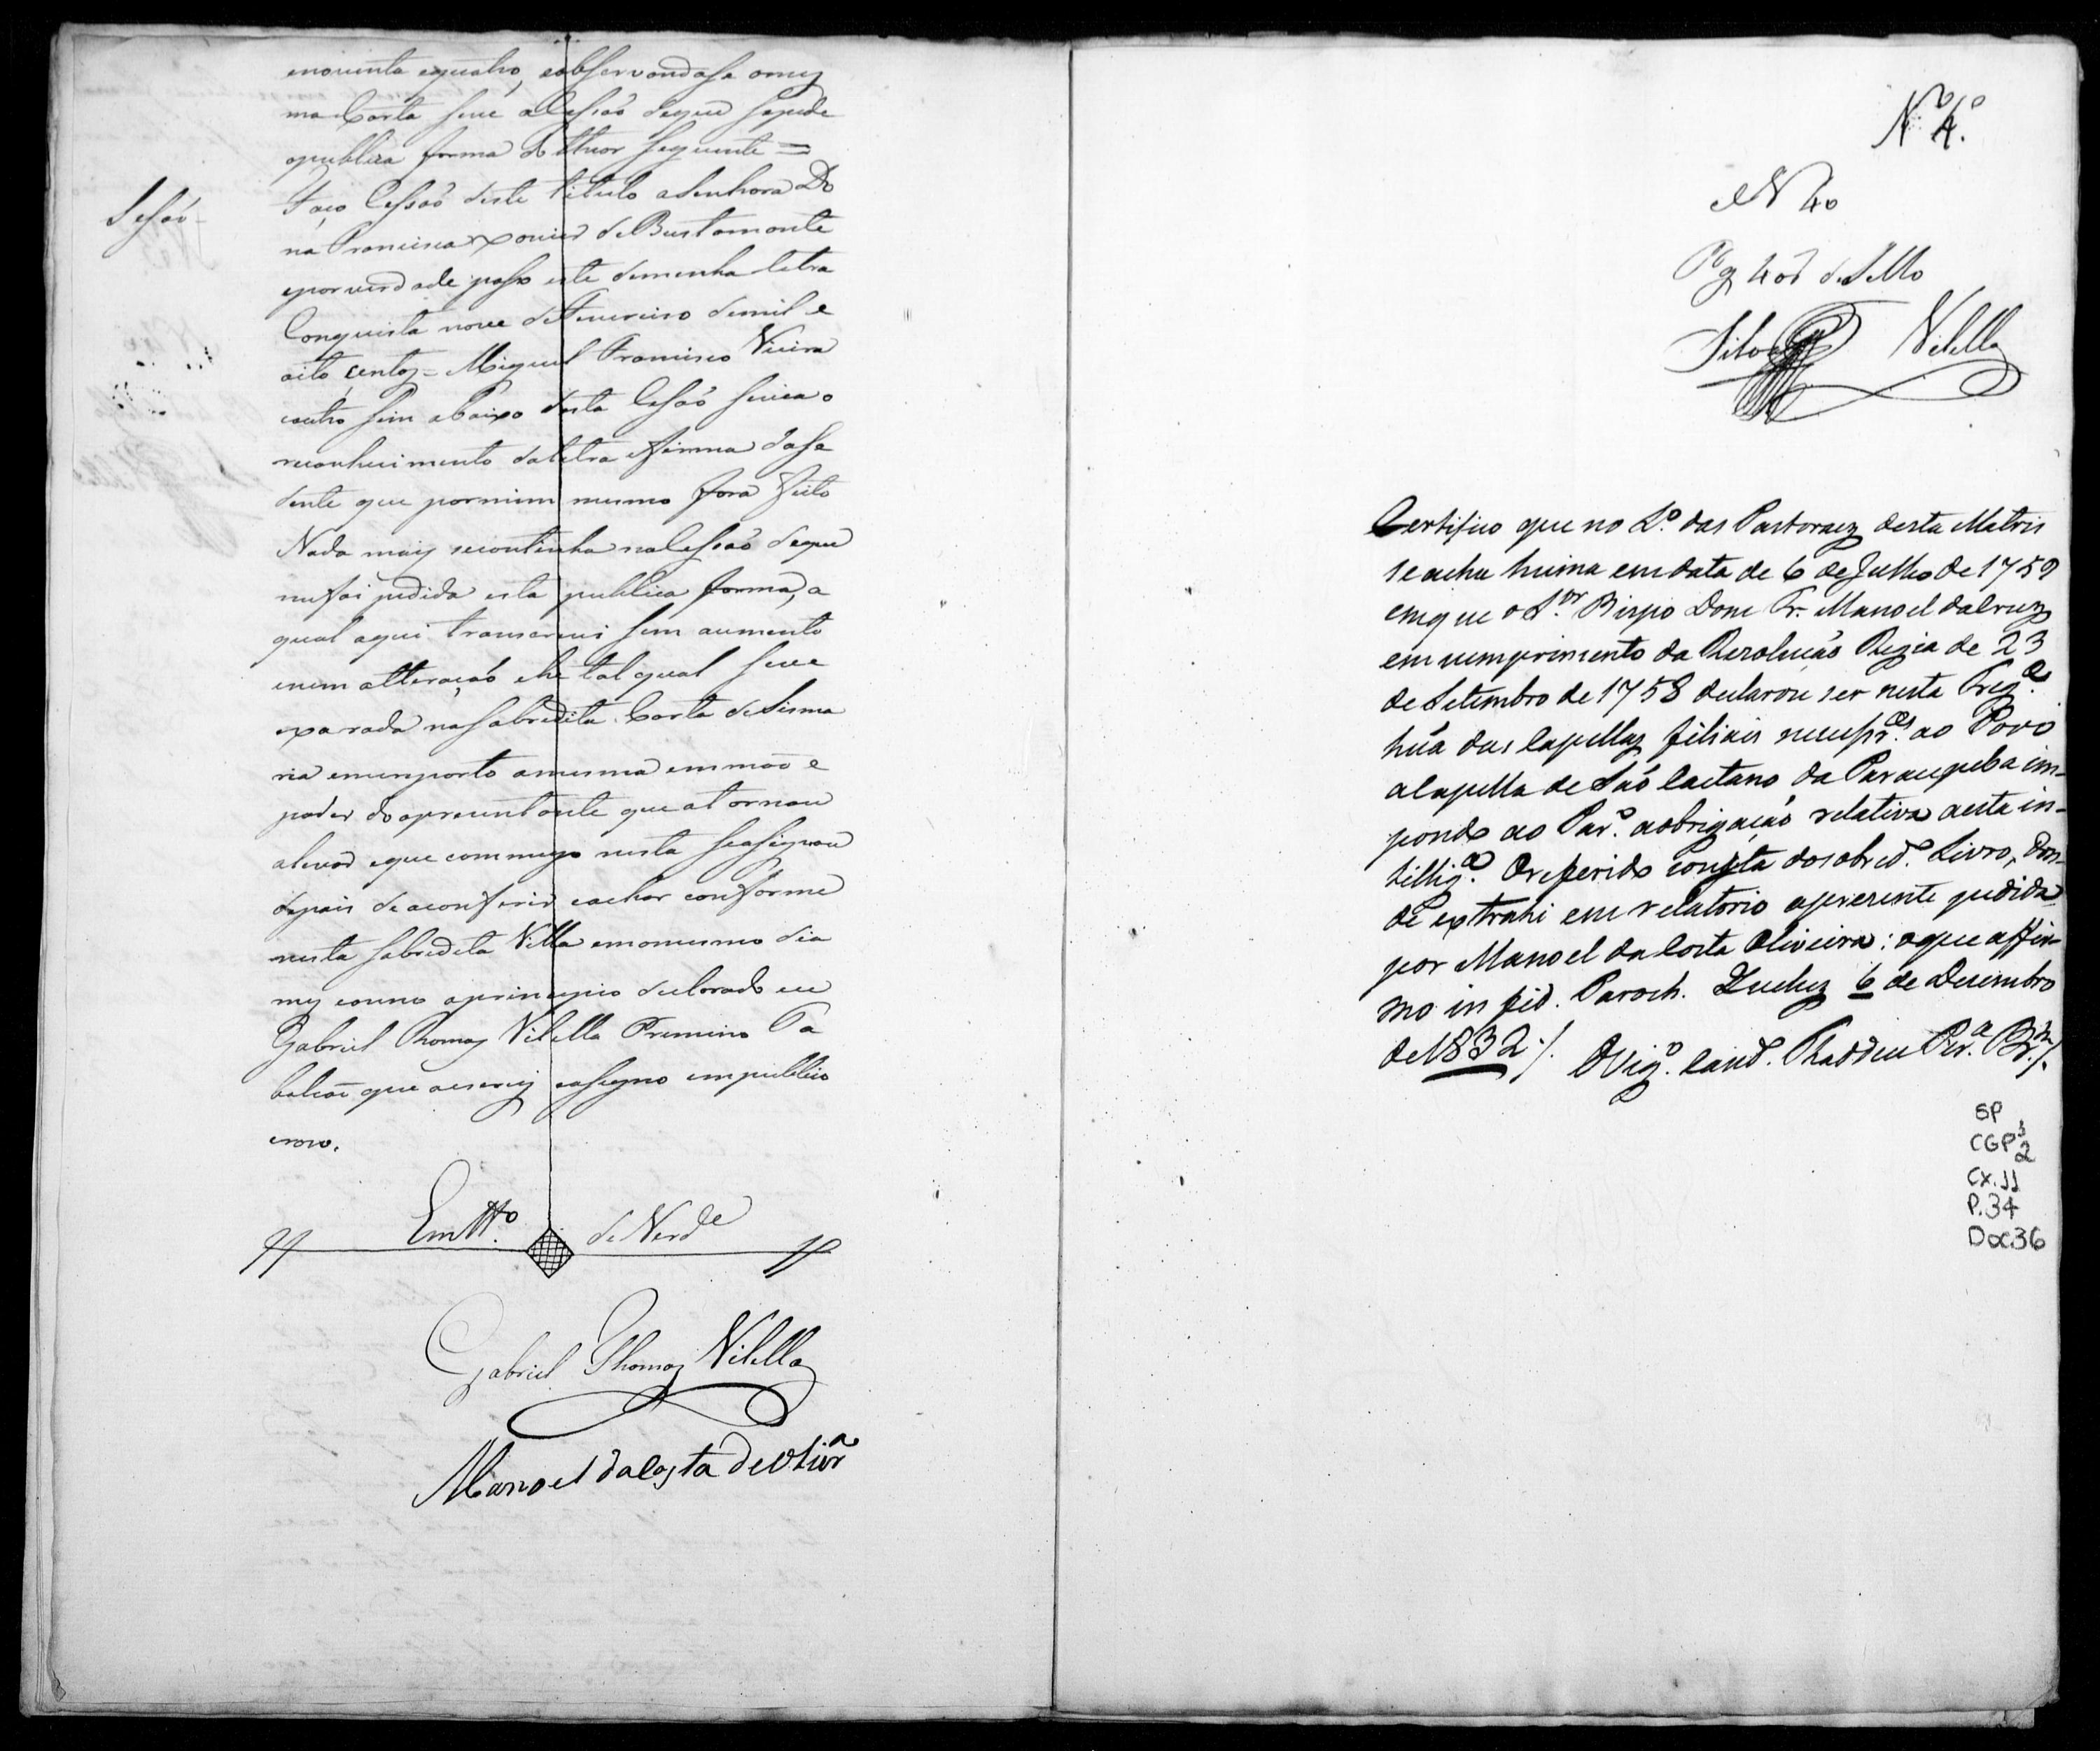 enoventa equatro, eobservandose omes
ma Carta seve aCessaõ dequé sepede
apublica forma do theor seguinte =
Sessaõ
Faço Cessaõ deste titulo aSenhora Do
na Francisca Xavier de Bustamante
eporverdade passo este deminha letra
Conquista nove deFevereiro demil e
oito centos = Miguel Francisco Vieira
eoutro sim abaixo desta Cessaõ sevia o
reconhecimento daletra efirma dasse
dente que pormim mesmo fora feito
Nada mais secontinha naCessaõ deque
mefoi pedida esta publica forma, a
qual aqui transcrevi sem aumento
enem alteraçaõ ehe tal qual seve
exarada nasobredita Carta deSisma
ria emenporto amesma emmaõ e
poder doaprezentante que atornou
alevar eque commigo nesta seasignou
depois deaconferir eachar conforme
nesta sobredita Villa emomesmo dia
mes eanno aprincipio declarado eu
Gabriel Thomas Vilella Premeiro Ta
baliaõ que aescrevy easigno empublico
eraso.
Em Ttº de Verdᵉ
Gabriel Thomas Vilella
Manoel daCosta deOlivrᵃ
Nº 4º.
N 40
Pg 40r deSello
Silva Vilella
Certifico que no Lº das Pastoraes desta Matris
se acha huma emdata de 6 deJulho de 1759
emque oSʳ. Bispo Dom Fr. Manoel daCruz
em cumprimento da Rezolucaõ Regia de 23
de Setembro de 1758 declarou ser nesta Fregª.
huá das Capellas filiais necessrᵃˢ. ao Povo
aCapella de Saõ Caetano da Paraupeba im-
pondo ao Parº. aobrigaçaõ relativa aesta in-
telligª. Oreferido consta dosobredº. Livro, don-
de extrahi em relatorio aprezente pedida
por Manoel da Costa Oliveira: oque affir-
mo in fid. Paroch. Queluz 6 de Dezembro
de 1832 /.
OVigº. Cand. Thaddeu Perª. Brᵐ /.
SP
CGP³
2
Cx.11
P.34
Doc36